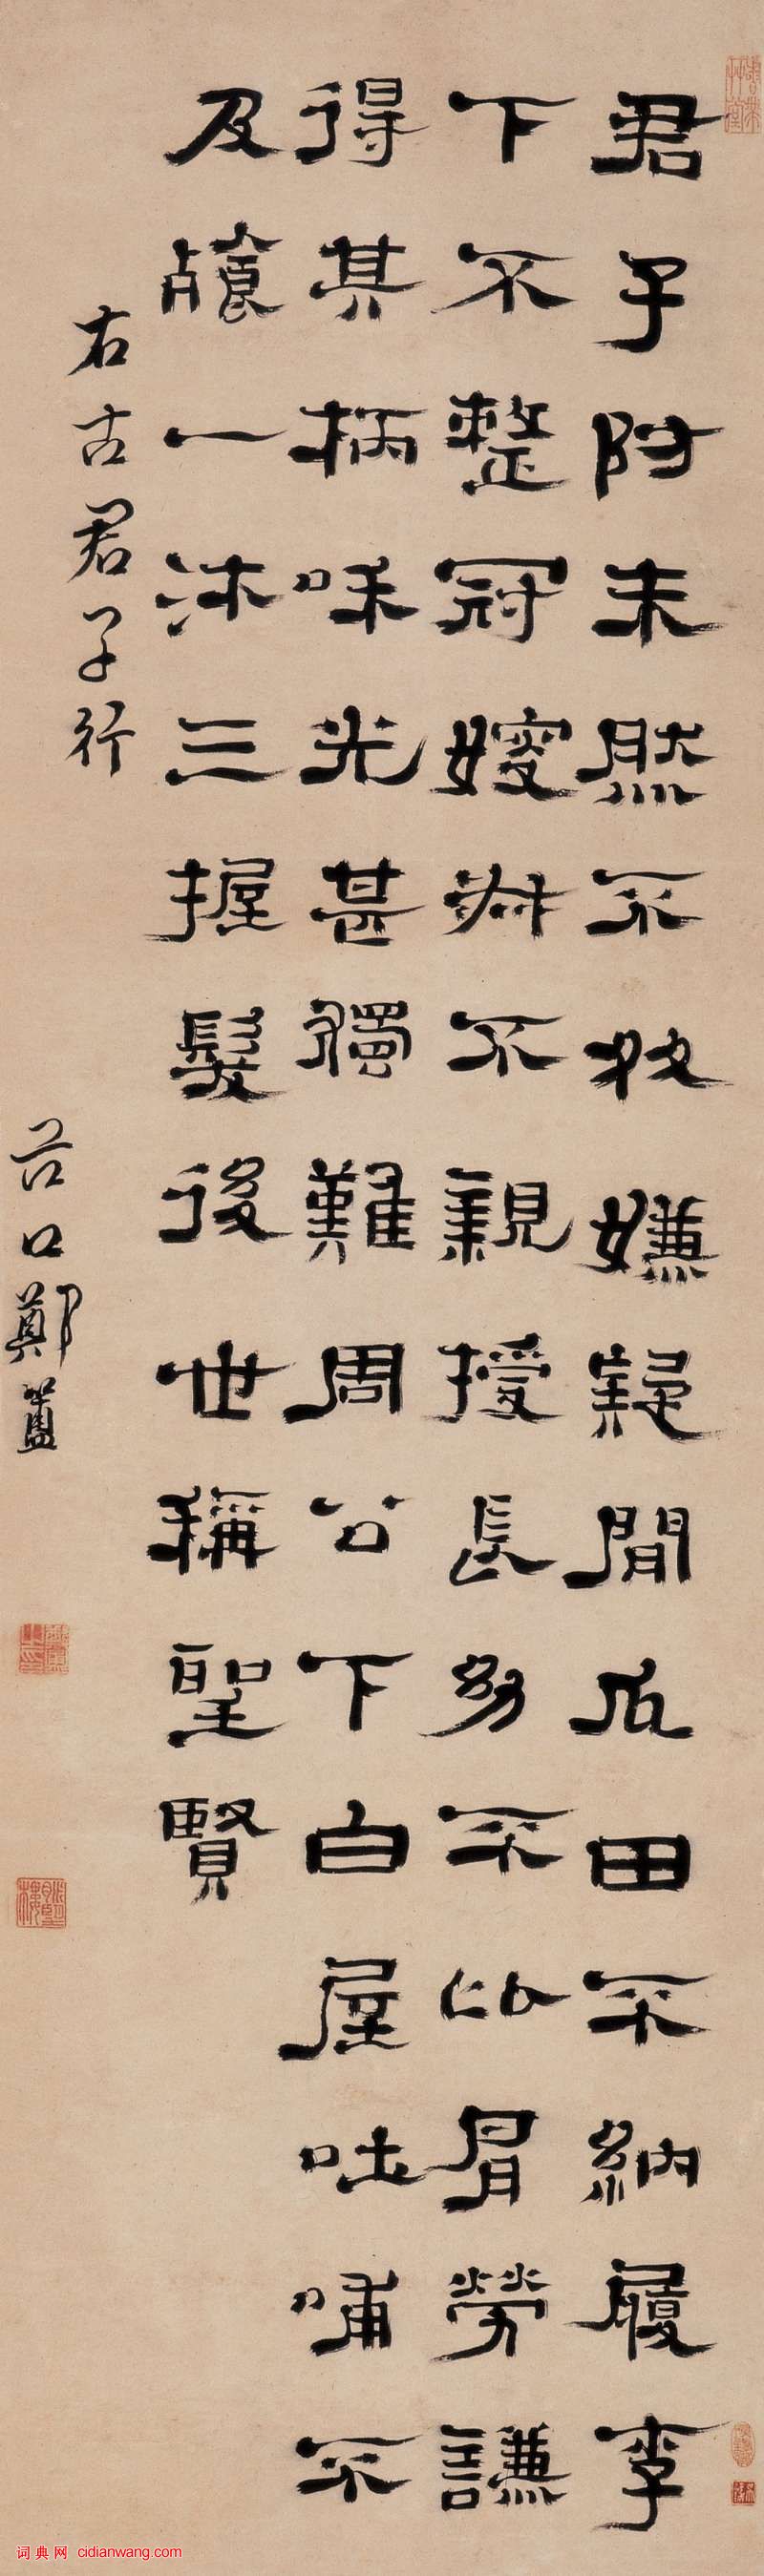 君子防未然不處嫌疑間瓜田不納履李
下不整冠嫂叔不親授長幼不比肩勞謙
得其柄和光甚獨難周公下白屋吐哺不
及餐一沐三握髮後世稱聖賢
右古君子行
谷口鄭簠
词典网 cidianwang.com